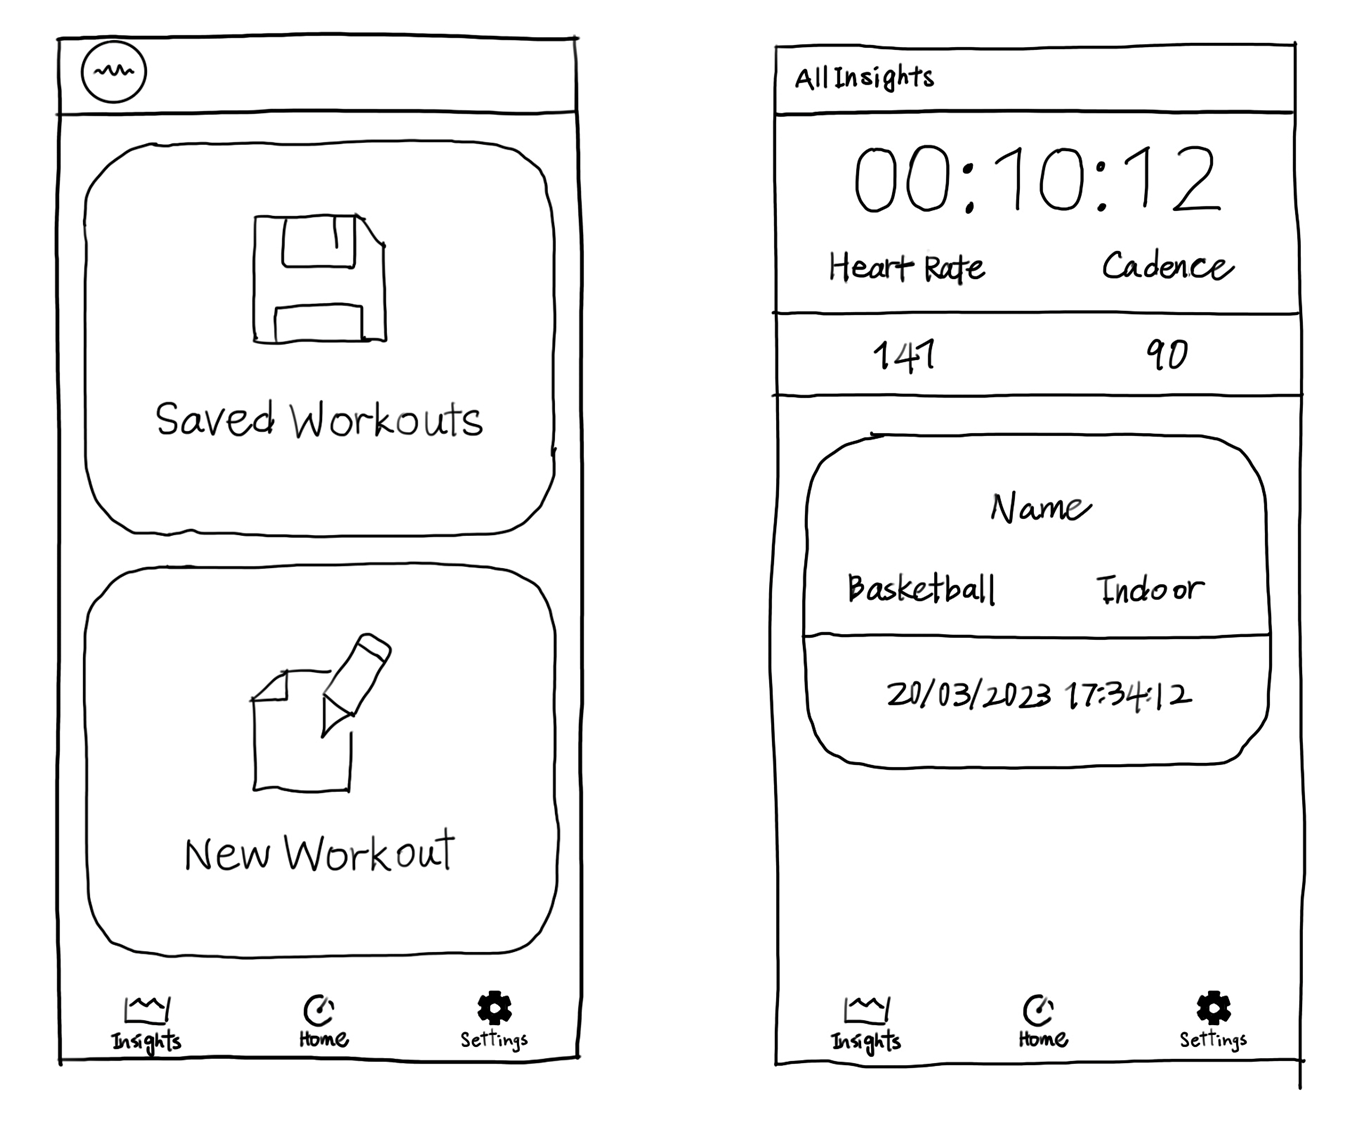 Saved Workouts
New Workout
Insights Home Settings
All Insights
00:10:12
Heart Rate Cadence
147 90
Name
Basketball Indoor
20/03/2023 17:34:12
Insights Home Settings